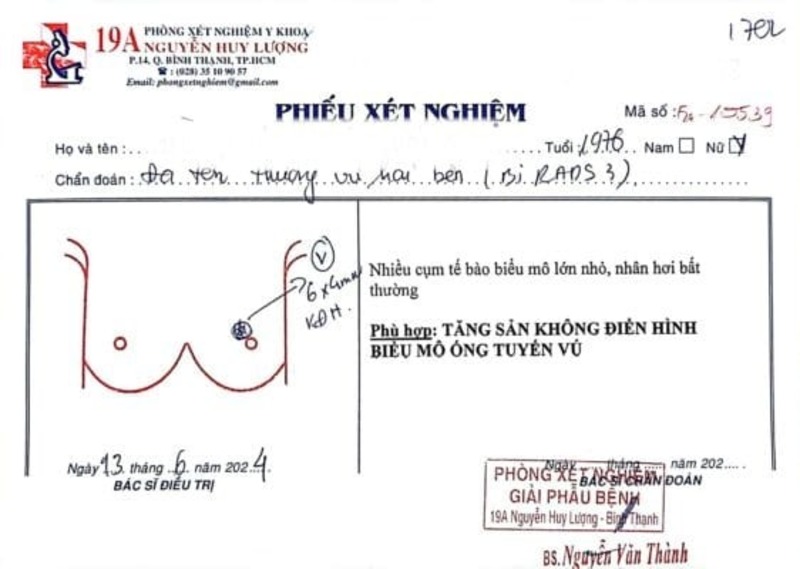 1702
PHÒNG XÉT NGHIỆM Y KHOA
19A NGUYỄN HUY LƯỢNG
P.14, Q. BÌNH THẠNH, TP.HCM
☎ : (028) 35 10 90 57
Email: phongxetnghiem@gmail.com
PHIẾU XÉT NGHIỆM
Mã số :
Họ và tên :
Tuổi : 1976 Nam Nữ
Chẩn đoán : Đa tổn thương vú hai bên (Bi RADS 3)
V
6 x 4mm
KĐH.
Nhiều cụm tế bào biểu mô lớn nhỏ, nhân hơi bất
thường
Phù hợp: TĂNG SẢN KHÔNG ĐIỂN HÌNH
BIỂU MÔ ỐNG TUYẾN VÚ
Ngày 13 tháng 6 năm 2024.
BÁC SĨ ĐIỀU TRỊ
Ngày ..... tháng ..... năm 202.....
BÁC SĨ CHẨN ĐOÁN
PHÒNG XÉT NGHIỆM
GIẢI PHẪU BỆNH
19A Nguyễn Huy Lượng - Bình Thạnh
BS. Nguyễn Văn Thành